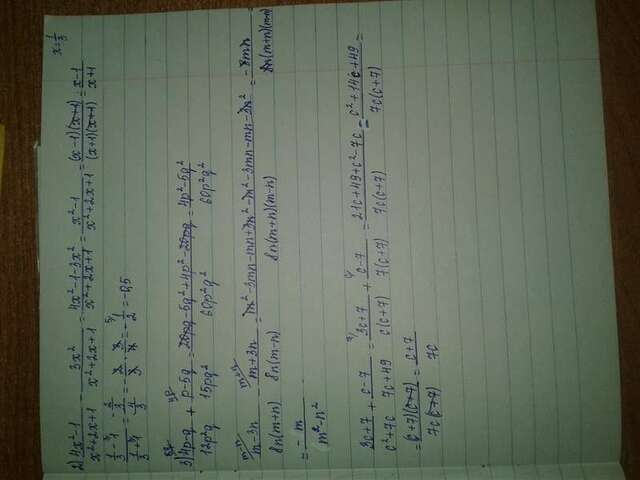 x=1/3
2) (4x²-1)/(x²+2x+1) - 3x²/(x²+2x+1) = (4x²-1-3x²)/(x²+2x+1) = (x²-1)/(x²+2x+1) = (x-1)(x+1)/(x+1)(x+1) = (x-1)/(x+1)
= -1/2 = -0,5
3) (4p-q)/12p²q + (p-5q)/15pq² = (20pq-5q²+4p²-20pq)/60p²q² = (4p²-5q²)/60p²q²
(m-3n)/8n(m+n) - (m+3n)/8n(m-n) = (m²-3mn-mn+3n²-m²-3mn-mn-3n²)/8n(m+n)(m-n) = -8mn/8n(m+n)(m-n)
= -m/(m²-n²)
(3c+7)/(c²+7c) + (c-7)/(7c+49) = (3c+7)/c(c+7) + (c-7)/7(c+7) = (21c+49+c²-7c)/7c(c+7) = (c²+14c+49)/7c(c+7) =
= (c+7)(c+7)/7c(c+7) = (c+7)/7c